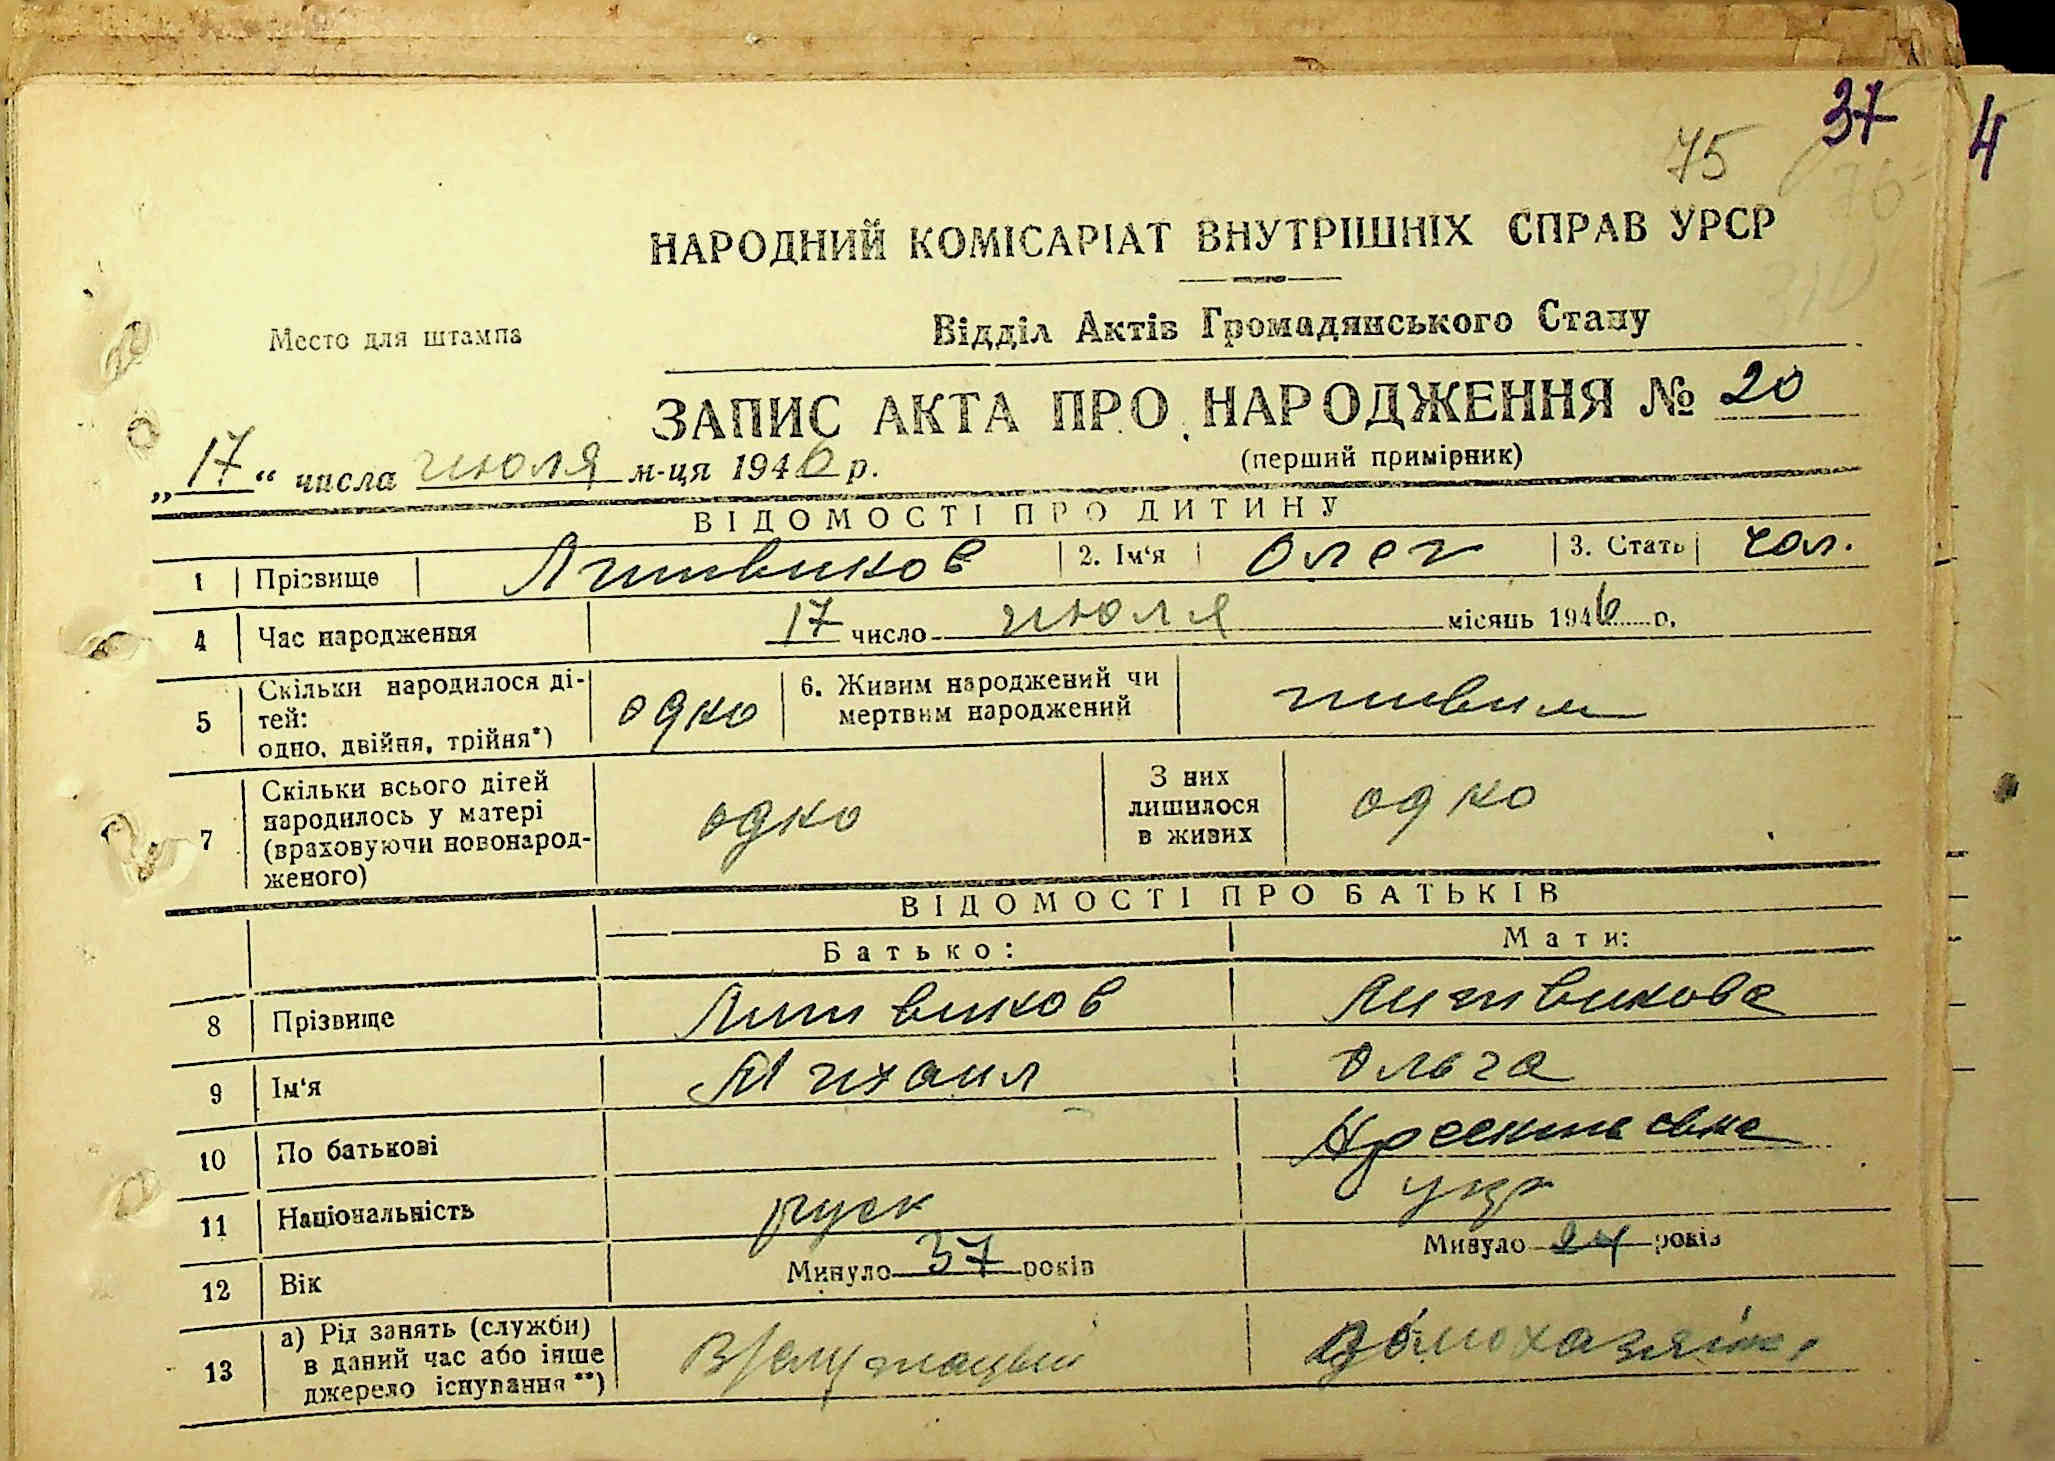 37
4
75
НАРОДНИЙ КОМІСАРІАТ ВНУТРІШНІХ СПРАВ УРСР
Место для штампа
Відділ Актів Громадянського Стану
ЗАПИС АКТА ПРО НАРОДЖЕННЯ № 20
(перший примірник)
„17“ числа июля м-ця 1946 р.
ВІДОМОСТІ ПРО ДИТИНУ
1 Прізвище Литвинов 2. Ім‘я Олег 3. Стать чол.
4 Час народження 17 число июля місяць 1946 р.
5 Скільки народилося ді-
тей:
одно, двійня, трійня*)
одно
6. Живим народжений чи
мертвим народжений
живим
7 Скільки всього дітей
народилось у матері
(враховуючи новонарод-
женого)
одно
З них
лишилося
в живих
одно
ВІДОМОСТІ ПРО БАТЬКІВ
Батько: Мати:
8 Прізвище Литвинов Литвинова
9 Ім‘я Михаил Ольга
10 По батькові
11 Національність руск укр
12 Вік Минуло 37 років Минуло 24 років
13 а) Рід занять (служби)
в даний час або інше
джерело існування **)
домохазяйка